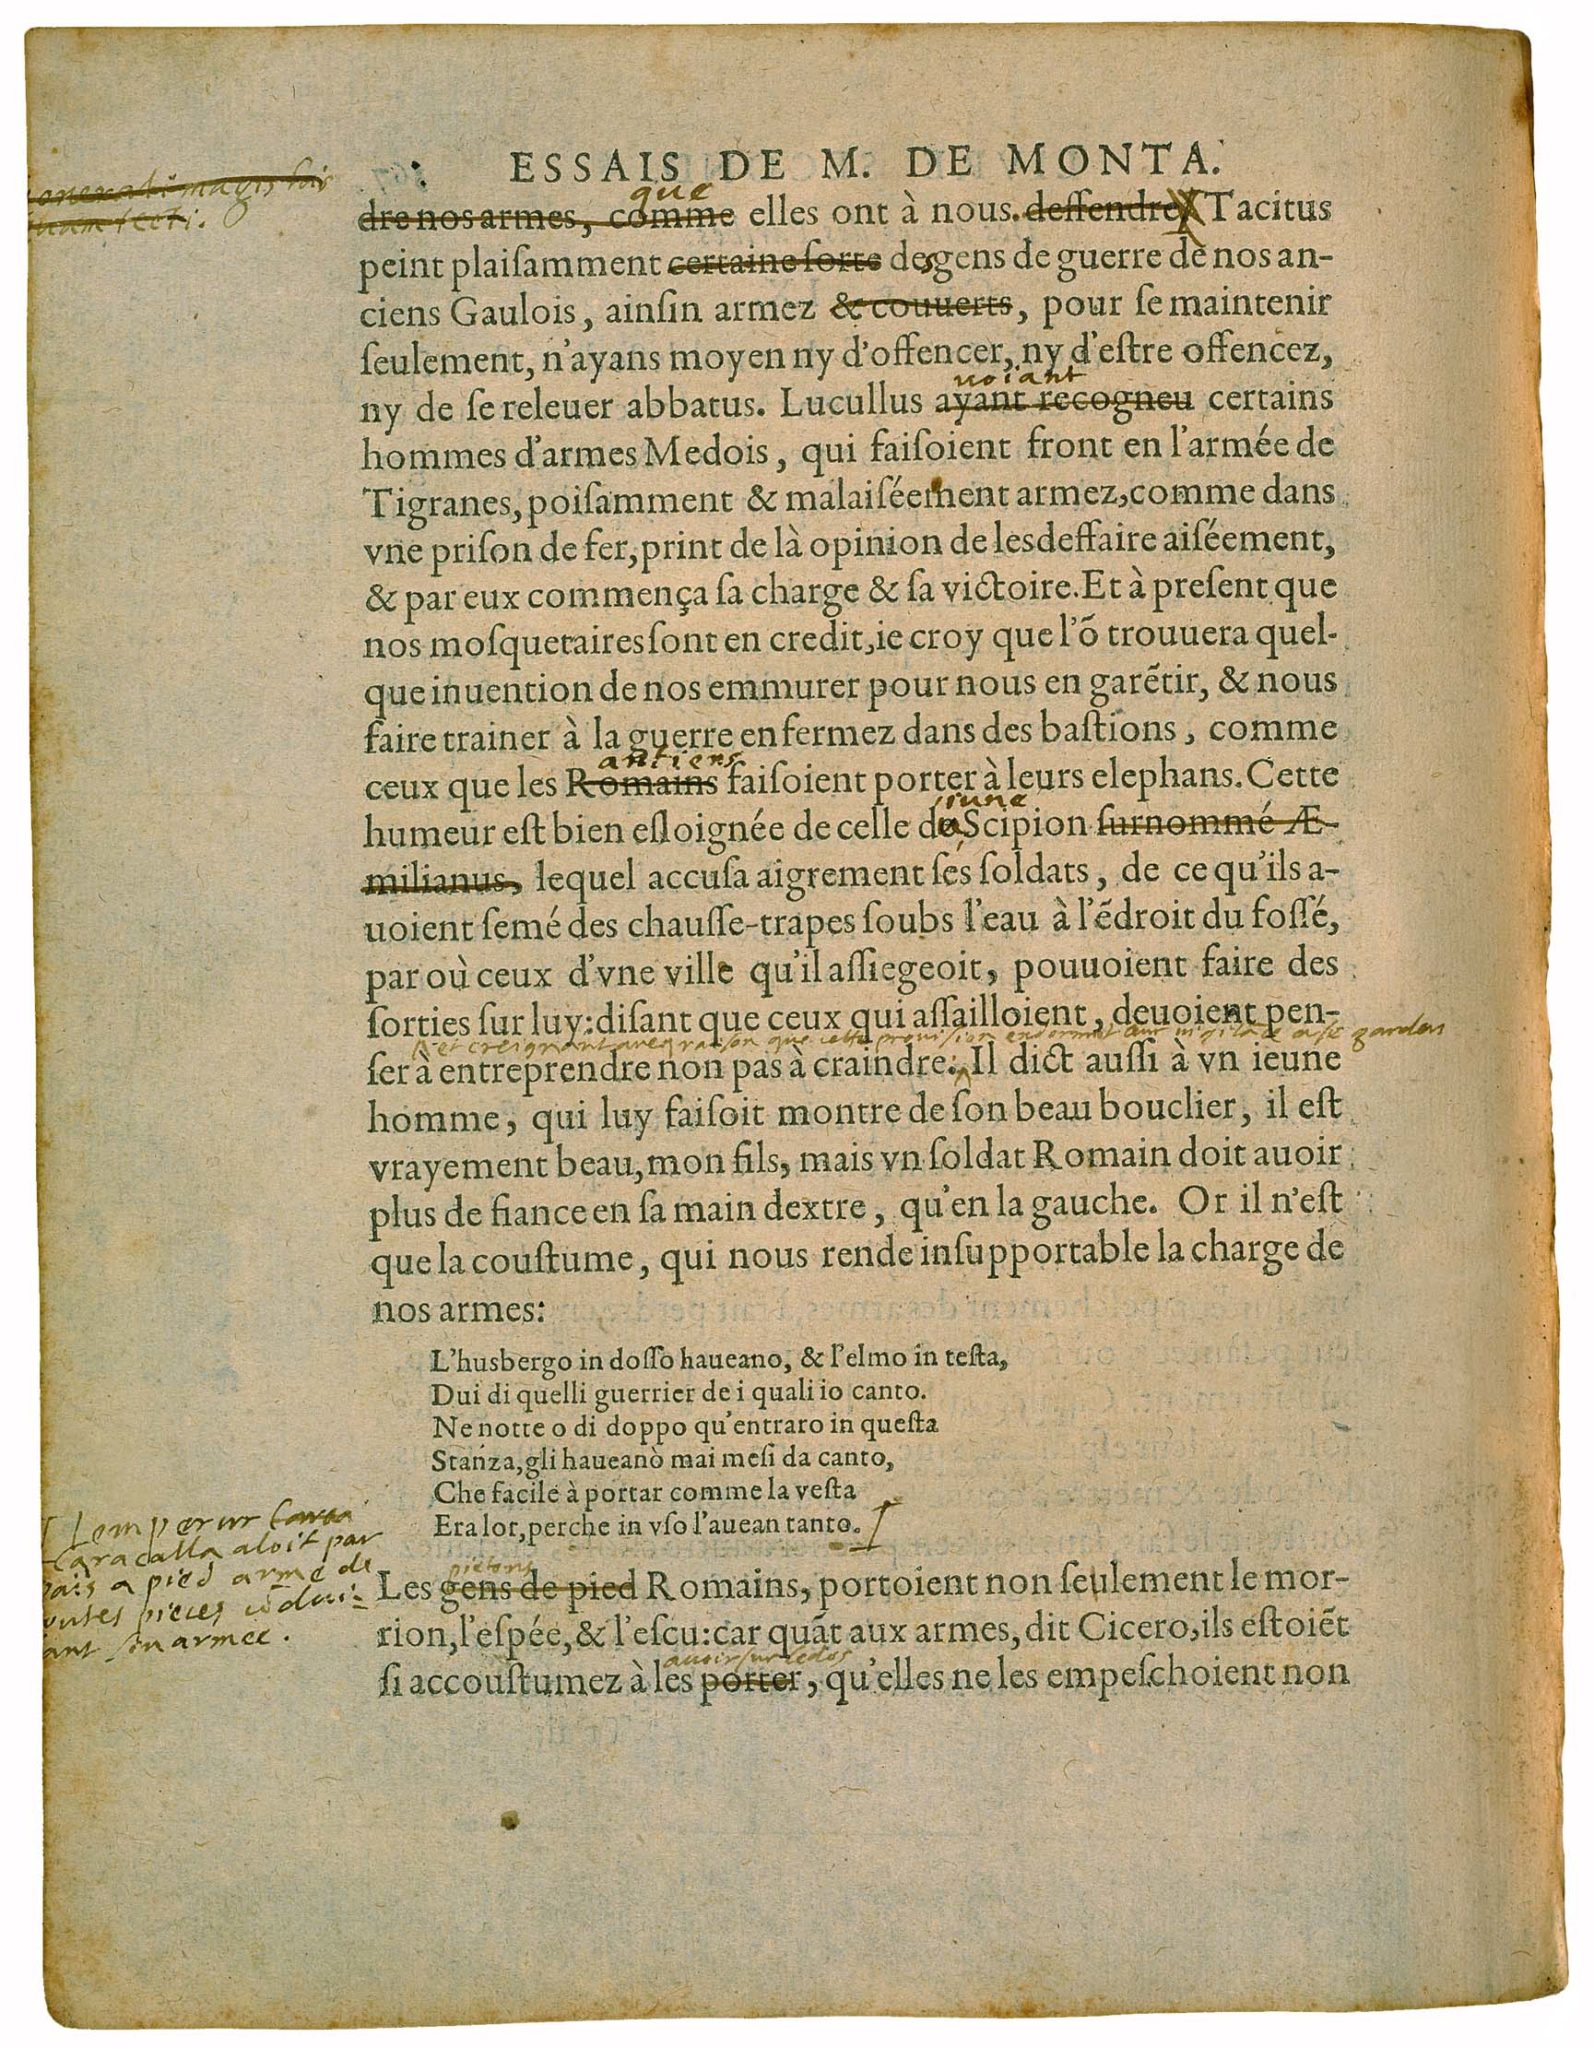 ESSAIS DE M. DE MONTA.
onerati magis
quam tecti.
que
dre nos armes, comme elles ont à nous. deffendre Tacitus
peint plaiſamment certaine ſorte des gens de guerre de nos an-
ciens Gaulois, ainſin armez & couuerts, pour ſe maintenir
ſeulement, n'ayans moyen ny d'offencer, ny d'eſtre offencez,
voiant
ny de ſe releuer abbatus. Lucullus ayant recogneu certains
hommes d'armes Medois, qui faiſoient front en l'armée de
Tigranes, poiſamment & malaiſéement armez, comme dans
vne priſon de fer, print de là opinion de les deffaire aiſéement,
& par eux commença ſa charge & ſa victoire. Et à preſent que
nos moſquetaires ſont en credit, ie croy que l'õ trouuera quel-
que inuention de nos emmurer pour nous en garẽtir, & nous
faire trainer à la guerre enfermez dans des baſtions, comme
antiens
ceux que les Romains faiſoient porter à leurs elephans. Cette
iune
humeur eſt bien eſloignée de celle du Scipion ſurnommé Æ-
milianus, lequel accuſa aigrement ſes ſoldats, de ce qu'ils a-
uoient ſemé des chauſſe-trapes ſoubs l'eau à l'ẽdroit du foſſé,
par où ceux d'vne ville qu'il aſſiegeoit, pouuoient faire des
ſorties ſur luy: diſant que ceux qui aſſailloient, deuoient pen-
et creignant aveq raison que cette provision endormit leur vigilãce a se garder
ſer à entreprendre non pas à craindre: Il dict auſſi à vn ieune
homme, qui luy faiſoit montre de ſon beau bouclier, il eſt
vrayement beau, mon fils, mais vn ſoldat Romain doit auoir
plus de fiance en ſa main dextre, qu'en la gauche. Or il n'eſt
que la couſtume, qui nous rende inſupportable la charge de
nos armes:
L'husbergo in doſſo haueano, & l'elmo in teſta,
Dui di quelli guerrier de i quali io canto.
Ne notte o di doppo qu'entraro in queſta
Stanza, gli haueanò mai meſi da canto,
Che facile à portar comme la veſta
Era lor, perche in vſo l'auean tanto.
Lemperur
Caracalla aloit par
païs a pied arme de
toutes pieces cõdui-
sant son armee.
pietons
Les gens de pied Romains, portoient non ſeulement le mor-
rion, l'eſpée, & l'eſcu: car quãt aux armes, dit Cicero, ils eſtoiẽt
avoir sur le dos
ſi accouſtumez à les porter, qu'elles ne les empeſchoient non